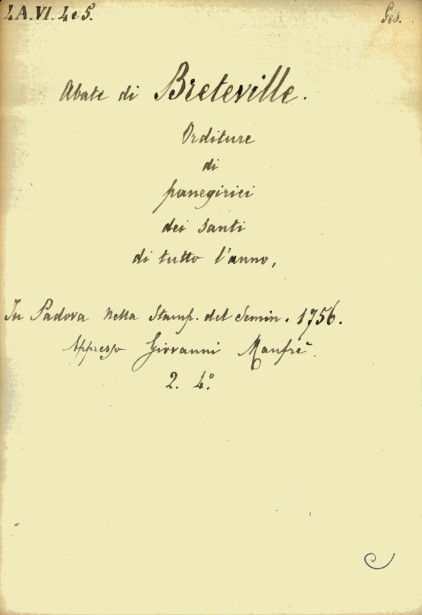 4.A.VI. 4 e 5. Ges.
Abate di Breteville.
Orditure
di
panegirici
dei santi
di tutto l'anno,
In Padova nella Stamp. del Semin. 1756.
Appresso Giovanni Manfrè.
2. 4º.